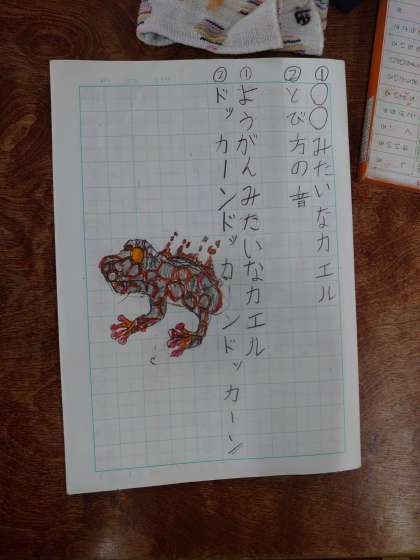 ①○○みたいなカエル
②とび方の音
①ようがんみたいなカエル
②ドッカーンドッカーンドッカーン